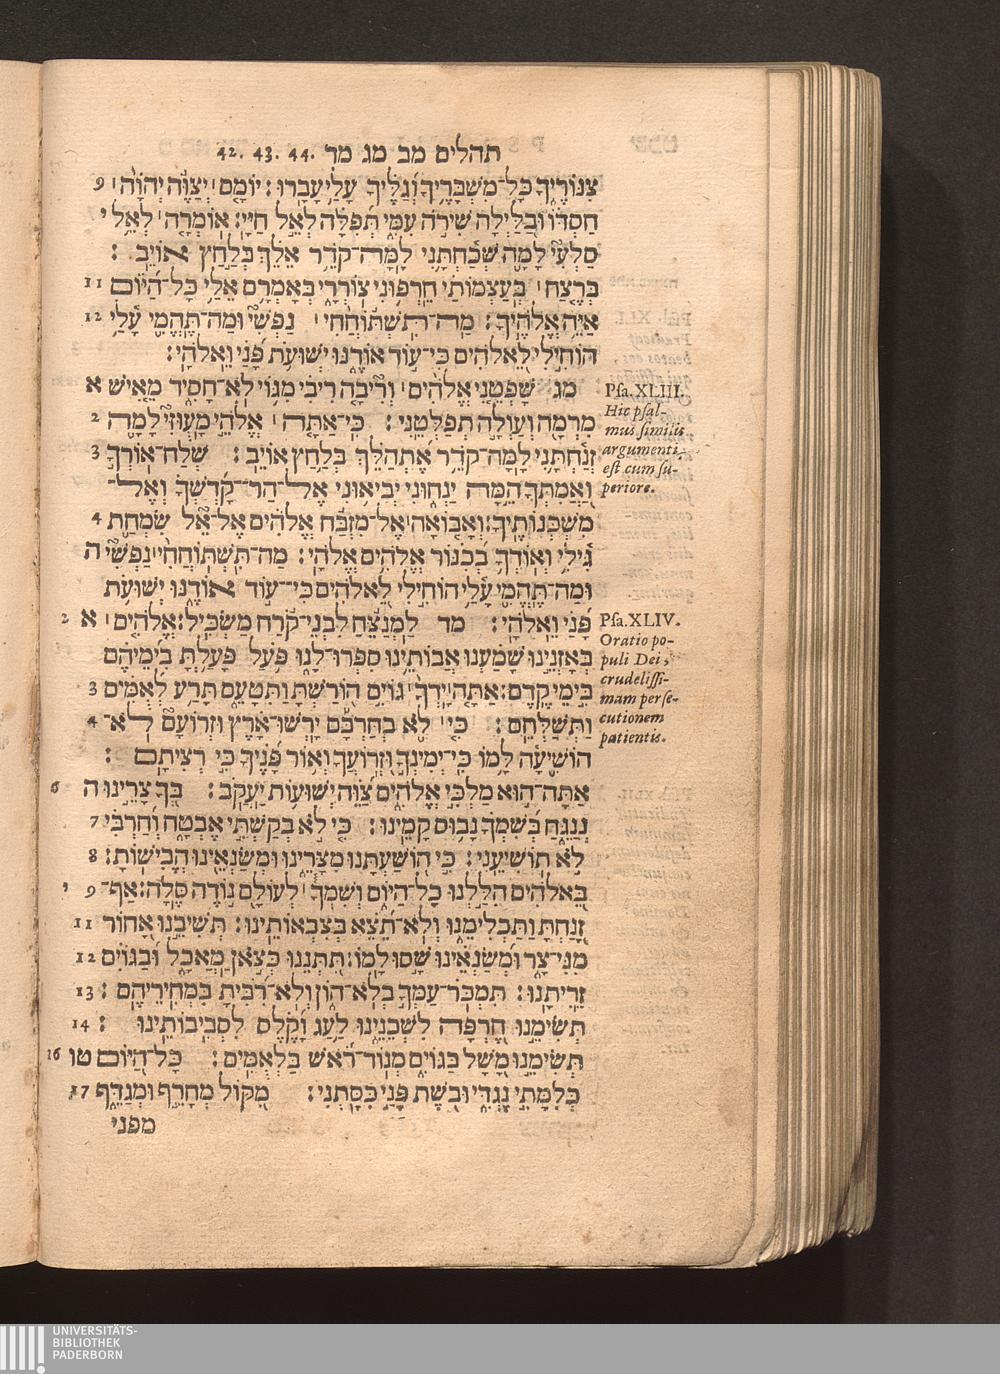 תהלים מב מג מד .42. 43. 44
צִנּוֹרֶיךָ כָּל־מִשְׁבָּרֶיךָ וְגַלֶּיךָ עָלַי עָבָרוּ׃ יוֹמָם׀ יְצַוֶּה יְהוָֹה׀ 9
חַסְדּוֹ וּבַלַּיְלָה שִׁירֹה עִמִּי תְּפִלָּה לְאֵל חַיָּי׃ אוֹמְרָה׀ לְאֵל י
סַלְעִי לָמָה שְׁכַחְתָּנִי לָמָּה־קֹדֵר אֵלֵךְ בְּלַחַץ אוֹיֵב׃
בְּרֶצַח׀ בְּעַצְמוֹתַי חֵרְפוּנִי צוֹרְרָי בְּאָמְרָם אֵלַי כָּל־הַיּוֹם 11
אַיֵּה אֱלֹהֶיךָ׃ מַה־תִּשְׁתּוֹחֲחִי׀ נַפְשִׁי וּמַה־תֶּהֱמִי עָלַי 12
הוֹחִילִי לֵאלֹהִים כִּי־עוֹד אוֹדֶנּוּ יְשׁוּעֹת פָּנַי וֵאלֹהָי׃
מג שָׁפְטֵנִי אֱלֹהִים׀ וְרִיבָה רִיבִי מִגּוֹי לֹא־חָסִיד מֵאִישׁ א
מִרְמָה וְעַוְלָה תְפַלְּטֵנִי׃ כִּי־אַתָּה׀ אֱלֹהֵי מָעֻזִּי לָמָה 2
זְנַחְתָּנִי לָמָּה־קֹדֵר אֶתְהַלֵּךְ בְּלַחַץ אוֹיֵב׃ שְׁלַח־אוֹרְךָ 3
וַאֲמִתְּךָ הֵמָּה יַנְחוּנִי יְבִיאוּנִי אֶל־הַר־קָדְשְׁךָ וְאֶל־
מִשְׁכְּנוֹתֶיךָ׃ וְאָבוֹאָה׀ אֶל־מִזְבַּח אֱלֹהִים אֶל־אֵל שִׂמְחַת 4
גִּילִי וְאוֹדְךָ בְכִנּוֹר אֱלֹהִים אֱלֹהָי׃ מַה־תִּשְׁתּוֹחֲחִי׀ נַפְשִׁי ה
וּמַה־תֶּהֱמִי עָלַי הוֹחִילִי לֵאלֹהִים כִּי־עוֹד אוֹדֶנּוּ יְשׁוּעֹת
פָּנַי וֵאלֹהָי׃ מד לַמְנַצֵּחַ לִבְנֵי־קֹרַח מַשְׂכִּיל׃ אֱלֹהִים׀ א 2
בְּאָזְנֵינוּ שָׁמַעְנוּ אֲבוֹתֵינוּ סִפְּרוּ־לָנוּ פֹּעַל פָּעַלְתָּ בִימֵיהֶם
בִּימֵי קֶדֶם׃ אַתָּה׀ יָדְךָ׀ גּוֹיִם הוֹרַשְׁתָּ וַתִּטָּעֵם תָּרַע לְאֻמִּים 3
וַתְּשַׁלְּחֵם׃ כִּי׀ לֹא בְחַרְבָּם יָרְשׁוּ־אָרֶץ וּזְרוֹעָם לֹא־ 4
הוֹשִׁיעָה לָּמוֹ כִּי־יְמִינְךָ וּזְרוֹעֲךָ וְאוֹר פָּנֶיךָ כִּי רְצִיתָם׃
אַתָּה־הוּא מַלְכִּי אֱלֹהִים צַוֵּה יְשׁוּעוֹת יַעֲקֹב׃ בְּךָ צָרֵינוּ ה 6
נְנַגֵּחַ בְּשִׁמְךָ נָבוּס קָמֵינוּ׃ כִּי לֹא בְקַשְׁתִּי אֶבְטָח וְחַרְבִּי 7
לֹא תוֹשִׁיעֵנִי׃ כִּי הוֹשַׁעְתָּנוּ מִצָּרֵינוּ וּמְשַׂנְאֵינוּ הֱבִישׁוֹתָ׃ 8
בֵּאלֹהִים הִלַּלְנוּ כָל־הַיּוֹם וְשִׁמְךָ׀ לְעוֹלָם נוֹדֶה סֶלָה׃ אַף־ 9 י
זָנַחְתָּ וַתַּכְלִימֵנוּ וְלֹא־תֵצֵא בְּצִבְאוֹתֵינוּ׃ תְּשִׁיבֵנוּ אָחוֹר 11
מִנִּי־צָר וּמְשַׂנְאֵינוּ שָׁסוּ לָמוֹ׃ תִּתְּנֵנוּ כְּצֹאן מַאֲכָל וּבַגּוֹיִם 12
זֵרִיתָנוּ׃ תִּמְכֹּר־עַמְּךָ בְלֹא־הוֹן וְלֹא־רִבִּיתָ בִּמְחִירֵיהֶם׃ 13
תְּשִׂימֵנוּ חֶרְפָּה לִשְׁכֵנֵינוּ לַעַג וָקֶלֶס לִסְבִיבוֹתֵינוּ׃ 14
תְּשִׂימֵנוּ מָשָׁל בַּגּוֹיִם מְנוֹד־רֹאשׁ בַּלְאֻמִּים׃ כָּל־הַיּוֹם טו 16
כְּלִמָּתִי נֶגְדִּי וּבֹשֶׁת פָּנַי כִּסָּתְנִי׃ מִקּוֹל מְחָרֵף וּמְגַדֵּף 17
מפני
Psa. XLIII.
Hic psal-
mus similis
argumenti
est cum su-
periore.
Psa. XLIV.
Oratio po-
puli Dei,
crudelissi-
mam perse-
cutionem
patientis.
UNIVERSITÄTS-
BIBLIOTHEK
PADERBORN